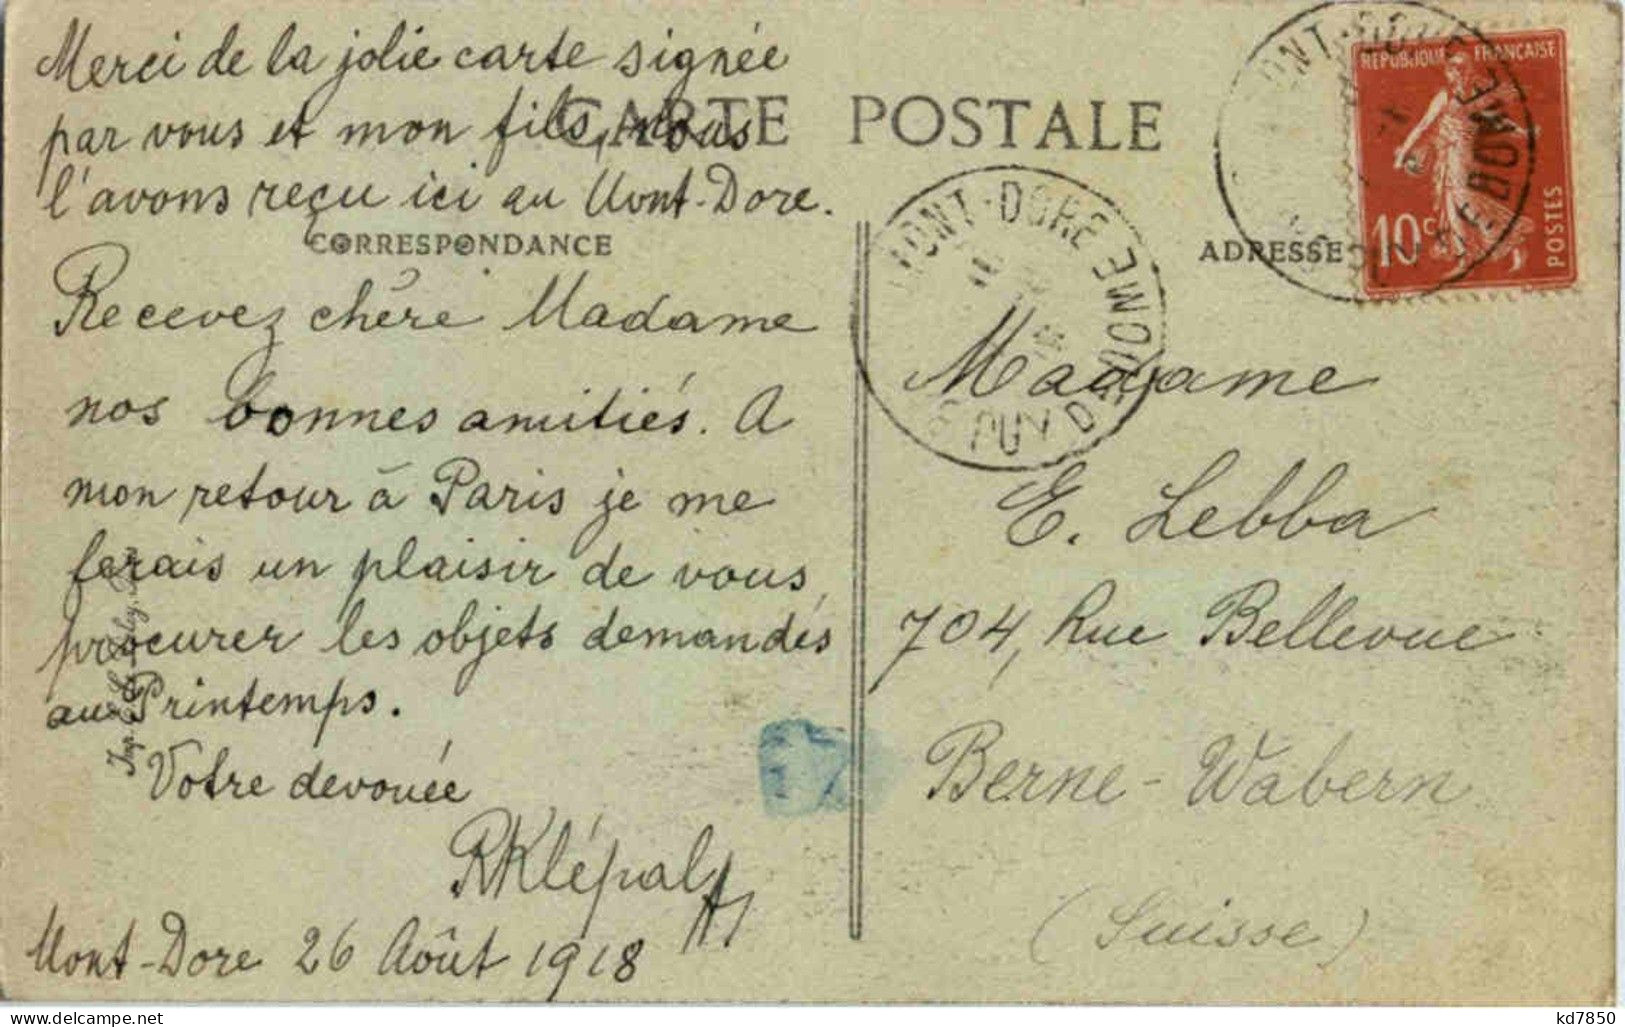 Merci de la jolie carte signée
par vous et mon fils, nous
l'avons reçu ici au Mont-Dore.
Recevez chère Madame
nos bonnes amitiés. A
mon retour à Paris je me
ferais un plaisir de vous
procurer les objets demandés
au Printemps.
Votre devouée
RKlépal
Mont-Dore 26 Août 1918
CARTE POSTALE
CORRESPONDANCE
ADRESSE
Madame
E. Lebba
704, Rue Bellevue
Berne-Wabern
(Suisse)
REPUBLIQUE FRANÇAISE
10c
POSTES
MONT-DORE
PUY-DE-DOME
MONT-DORE
PUY-DE-DOME
delcampe.net
kd7850